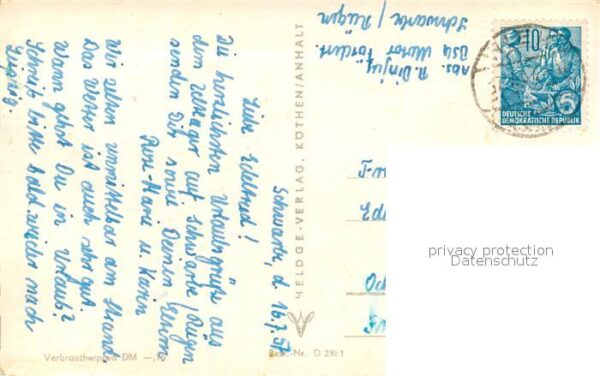 Schwarbe, d. 16.7.57
Liebe Edeltraud!
Die herzlichsten Urlaubsgrüße aus
dem Zeltlager auf Schwarbe / Rügen
senden Dir sowie Deinen Eltern
Rose-Marie u. Karin
Wir zelten unmittelbar am Strand.
Das Wetter ist auch sehr gut.
Wann gehst Du in Urlaub?
Schreib bitte bald wieder nach
Leipzig.
HELDGE-VERLAG, KÖTHEN/ANHALT
Abs. R.
BSG Motor
Schwarbe / Rügen
10
DEUTSCHE
DEMOKRATISCHE REPUBLIK
5
privacy protection
Datenschutz
Verbraucherpreis DM
Best.-Nr. D 2881